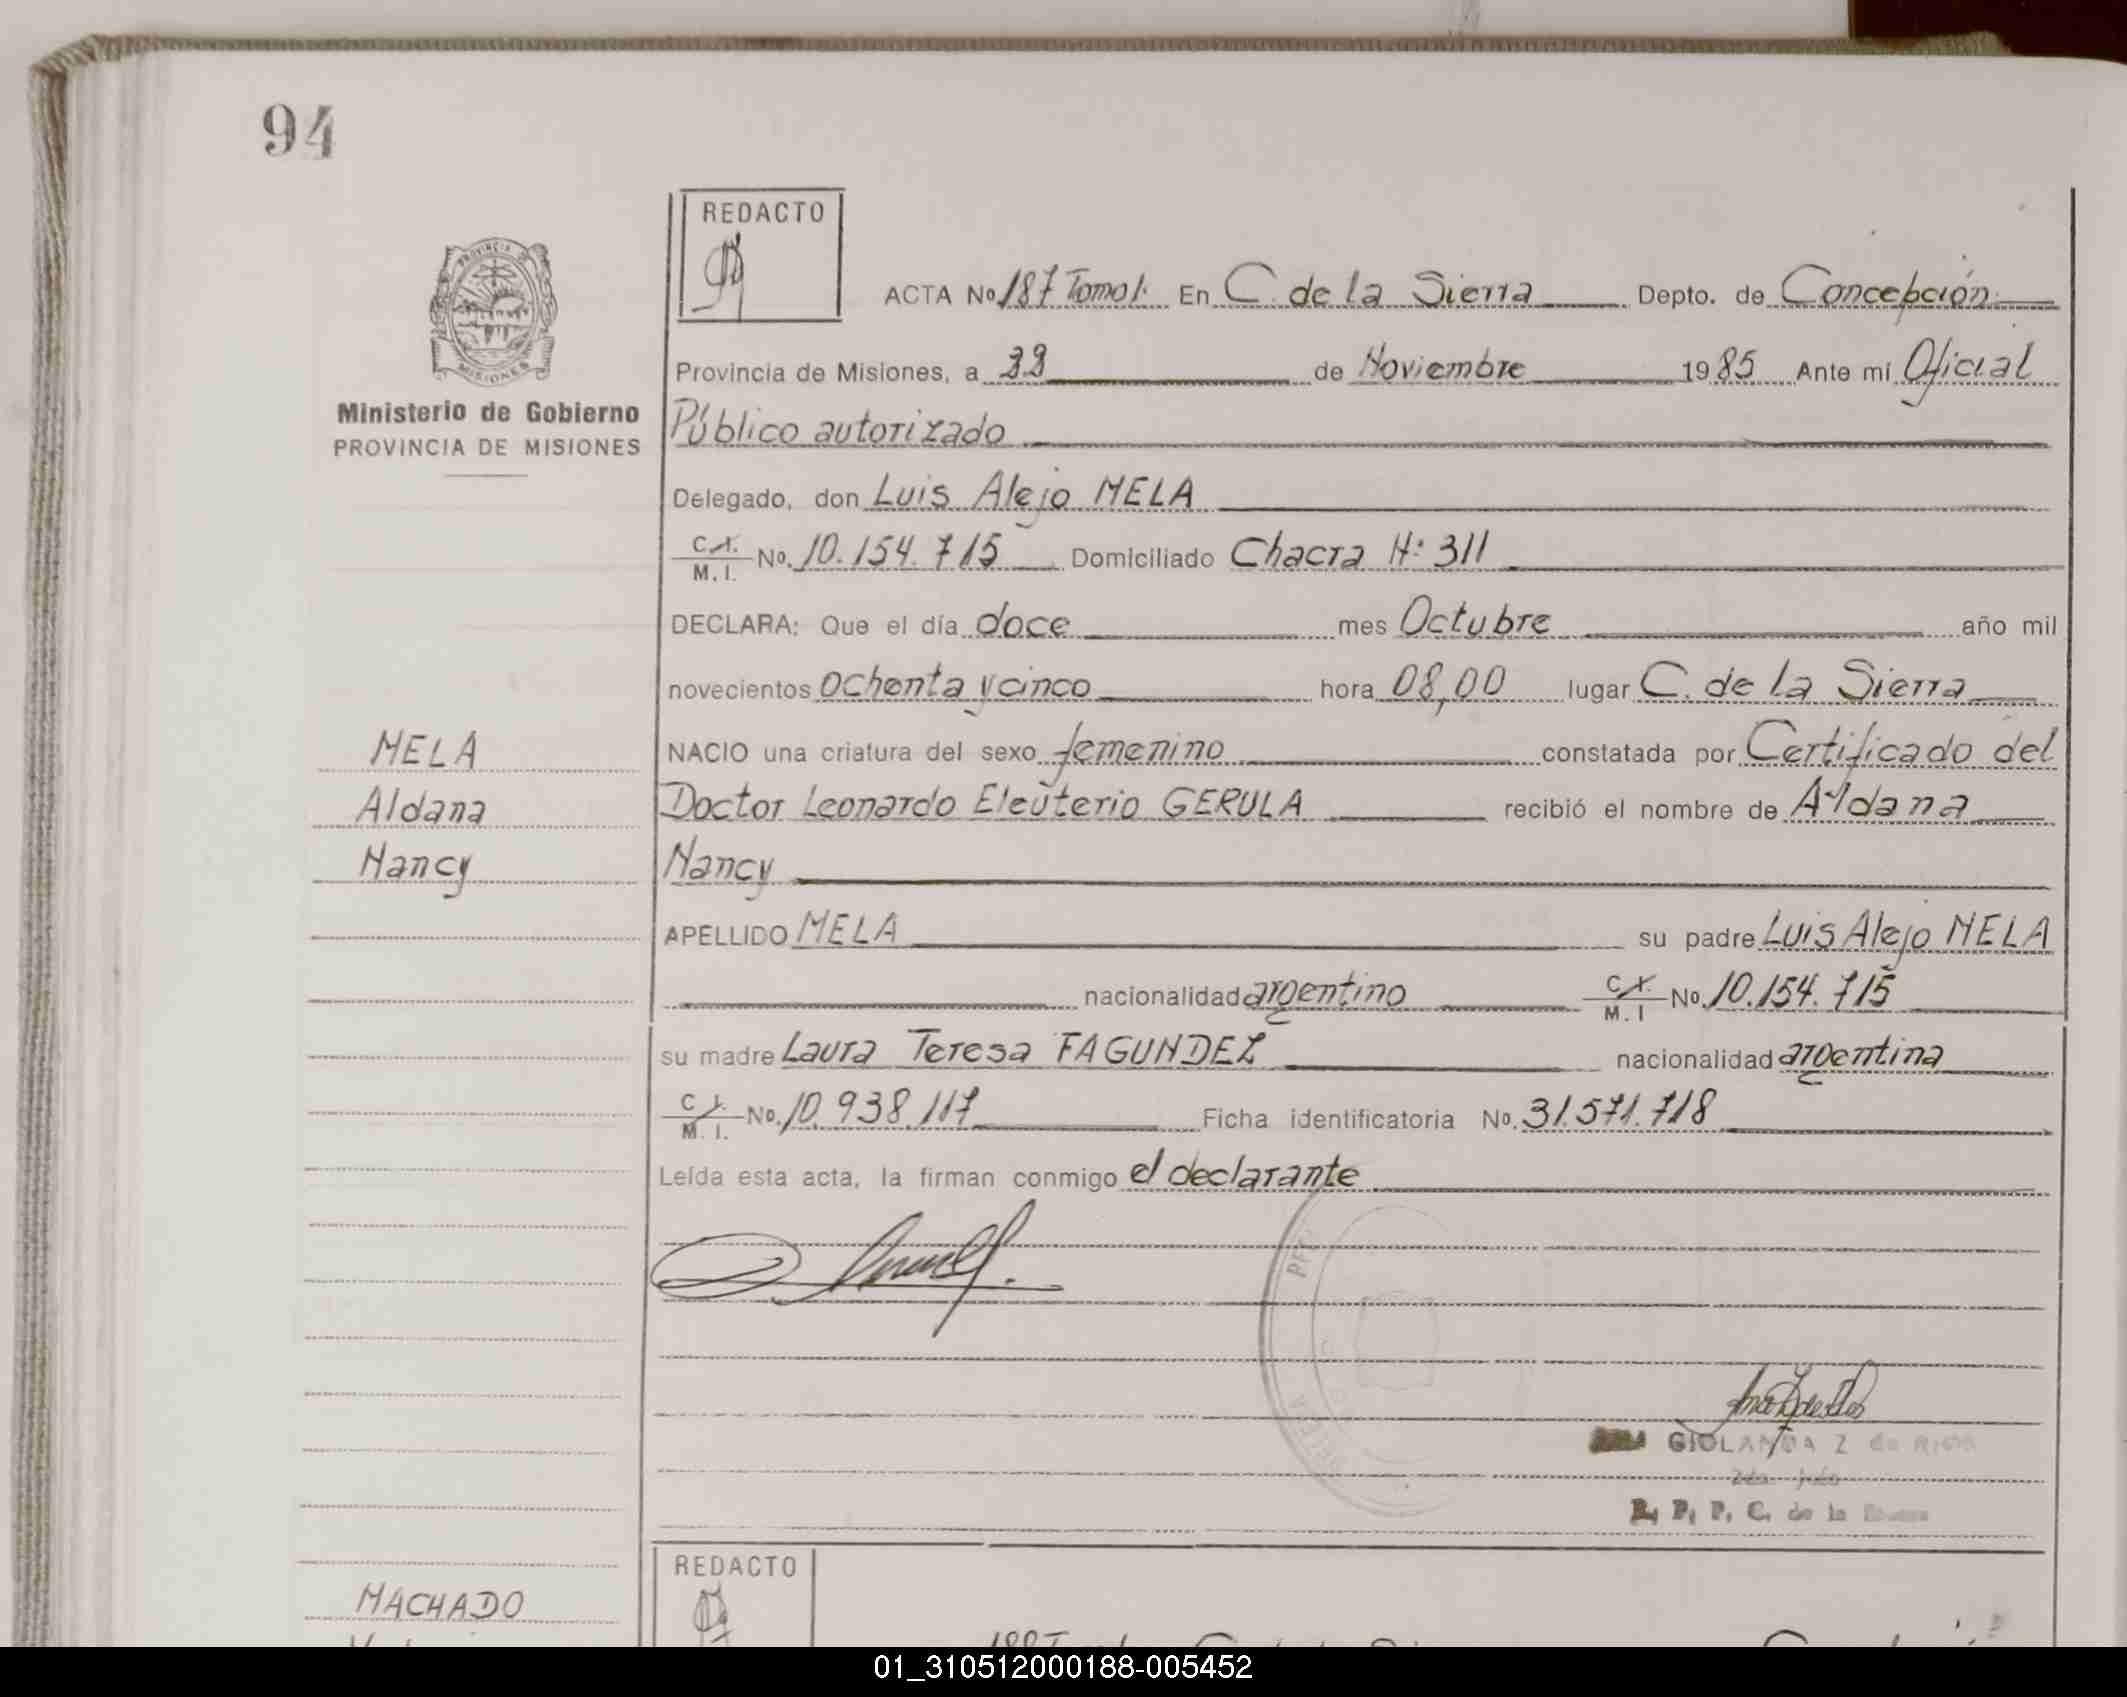 94
REDACTO
PROVINCIA
MISIONES
Ministerio de Gobierno
PROVINCIA DE MISIONES
ACTA No 187 Tomo 1. En C. de la Sierra Depto. de Concepción
Provincia de Misiones, a de Noviembre 1985 Ante mí Oficial
Público autorizado
Delegado, don Luis Alejo MELA
C.I. M.I. No. 10.154.715 Domiciliado Chacra N: 311
DECLARA: Que el día doce mes Octubre año mil
novecientos ochenta y cinco hora 08,00 lugar C. de la Sierra
MELA
NACIO una criatura del sexo femenino constatada por Certificado del
Aldana
Doctor Leonardo Eleuterio GERULA recibió el nombre de Aldana
Nancy
Nancy
APELLIDO MELA su padre Luis Alejo MELA
nacionalidad argentino C.I. M.I No. 10.154.715
su madre Laura Teresa FAGUNDEZ nacionalidad argentina
C.I. M.I. No. 10.938.117 Ficha identificatoria No. 31.571.718
Leída esta acta, la firman conmigo el declarante
GIOLANDA Z de
R. P. P. C. de la
REDACTO
MACHADO
01_310512000188-005452